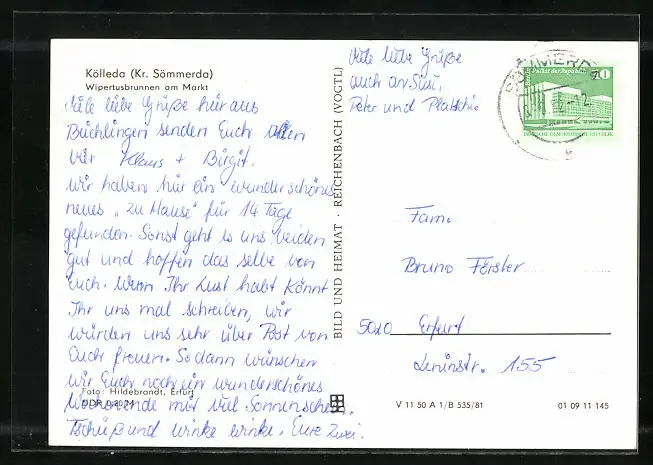 Kölleda (Kr. Sömmerda)
Wipertusbrunnen am Markt
Viele liebe Grüße hier aus
Büchlingen senden Euch allen
wir Klaus + Birgit.
Wir haben hier ein wunderschönes
neues „zu Hause" für 14 Tage
gefunden. Sonst geht es uns beiden
gut und hoffen das selbe von
Euch. Wenn Ihr Lust habt könnt
Ihr uns mal schreiben, wir
würden uns sehr über Post von
Euch freuen. So dann wünschen
wir Euch noch ein wunderschönes
Wochenende mit viel Sonnenschein.
Tschüß und winke winke. Eure Zwei.
Foto: Hildebrandt, Erfurt
DDR 0,20 M
BILD UND HEIMAT · REICHENBACH (VOGTL)
Viele liebe Grüße
auch an Susi,
Peter und
SÖMMERDA
Palast der Republik
DEUTSCHE DEMOKRATISCHE REPUBLIK
Fam.
Bruno Förster
5010 Erfurt
Leninstr. 155
V 11 50 A 1/B 535/81
01 09 11 145